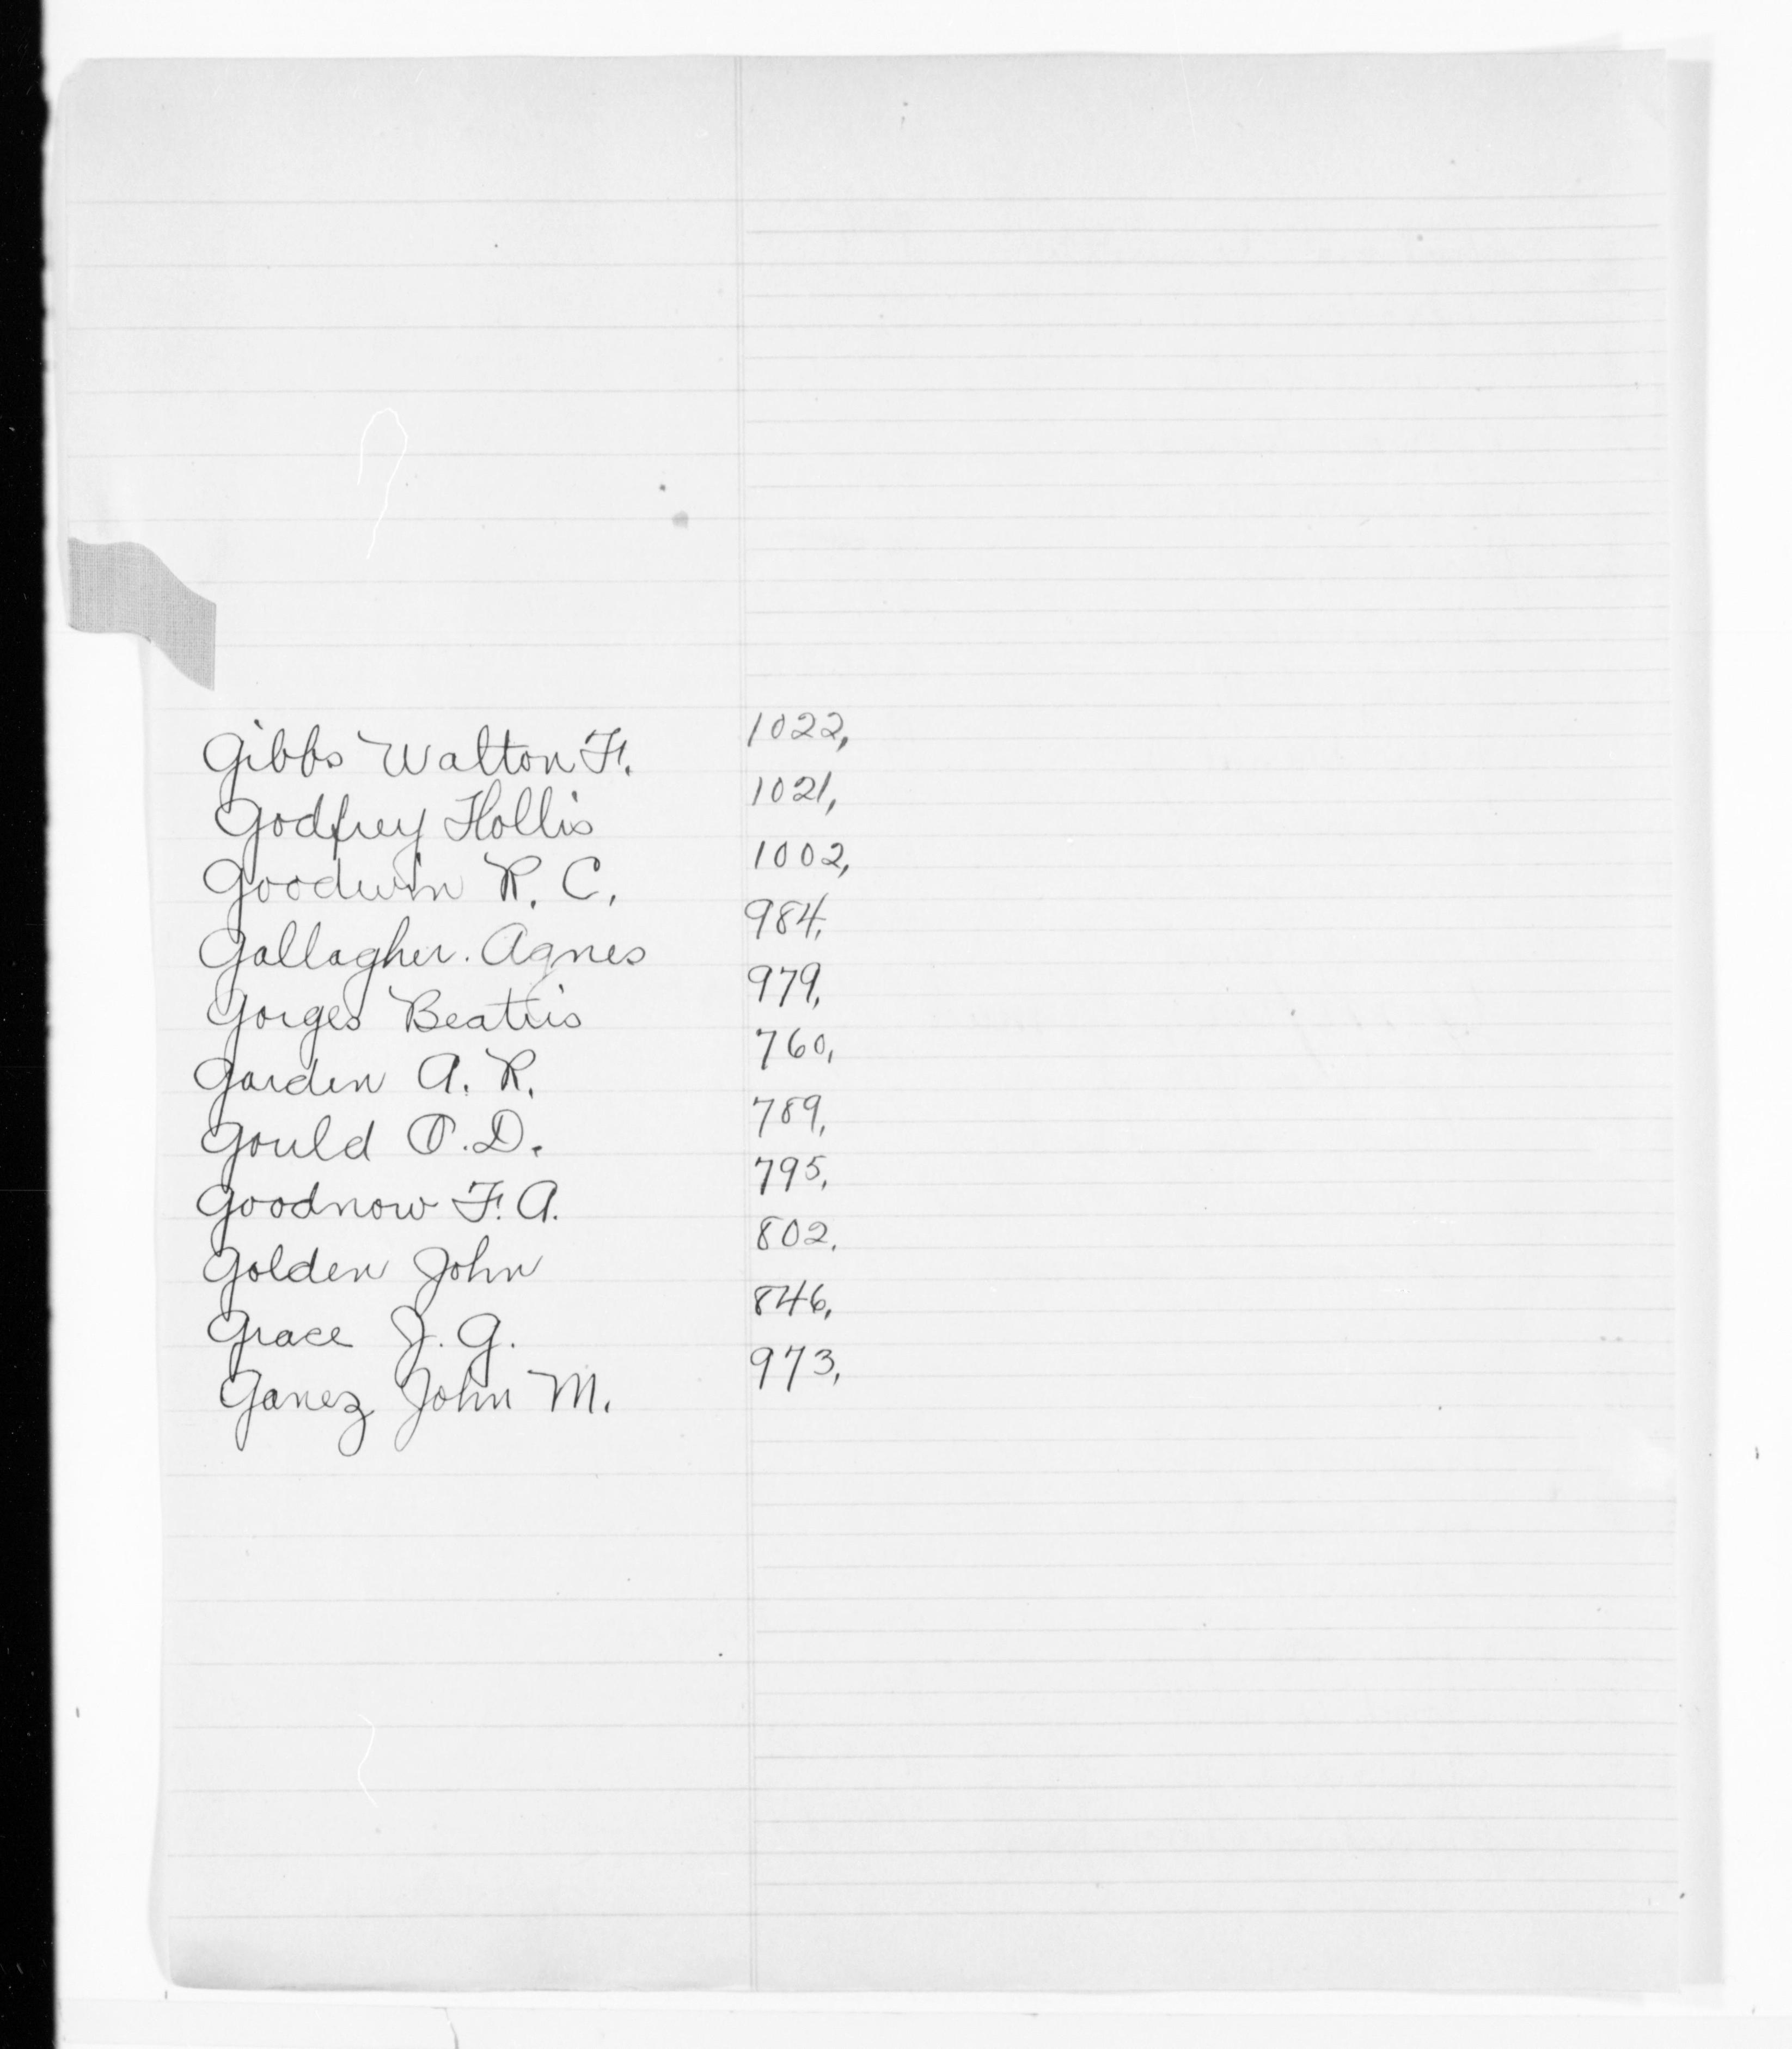 Gibbs Walton F. 1022,
Godfrey Hollis 1021,
Goodwin R. C. 1002,
Gallagher. Agnes 984,
Gorges Beatris 979,
Garden A. R. 760,
Gould O. D. 789,
Goodnow F. A. 795,
Golden John 802,
Grace J. G. 846,
Ganez John M. 973,